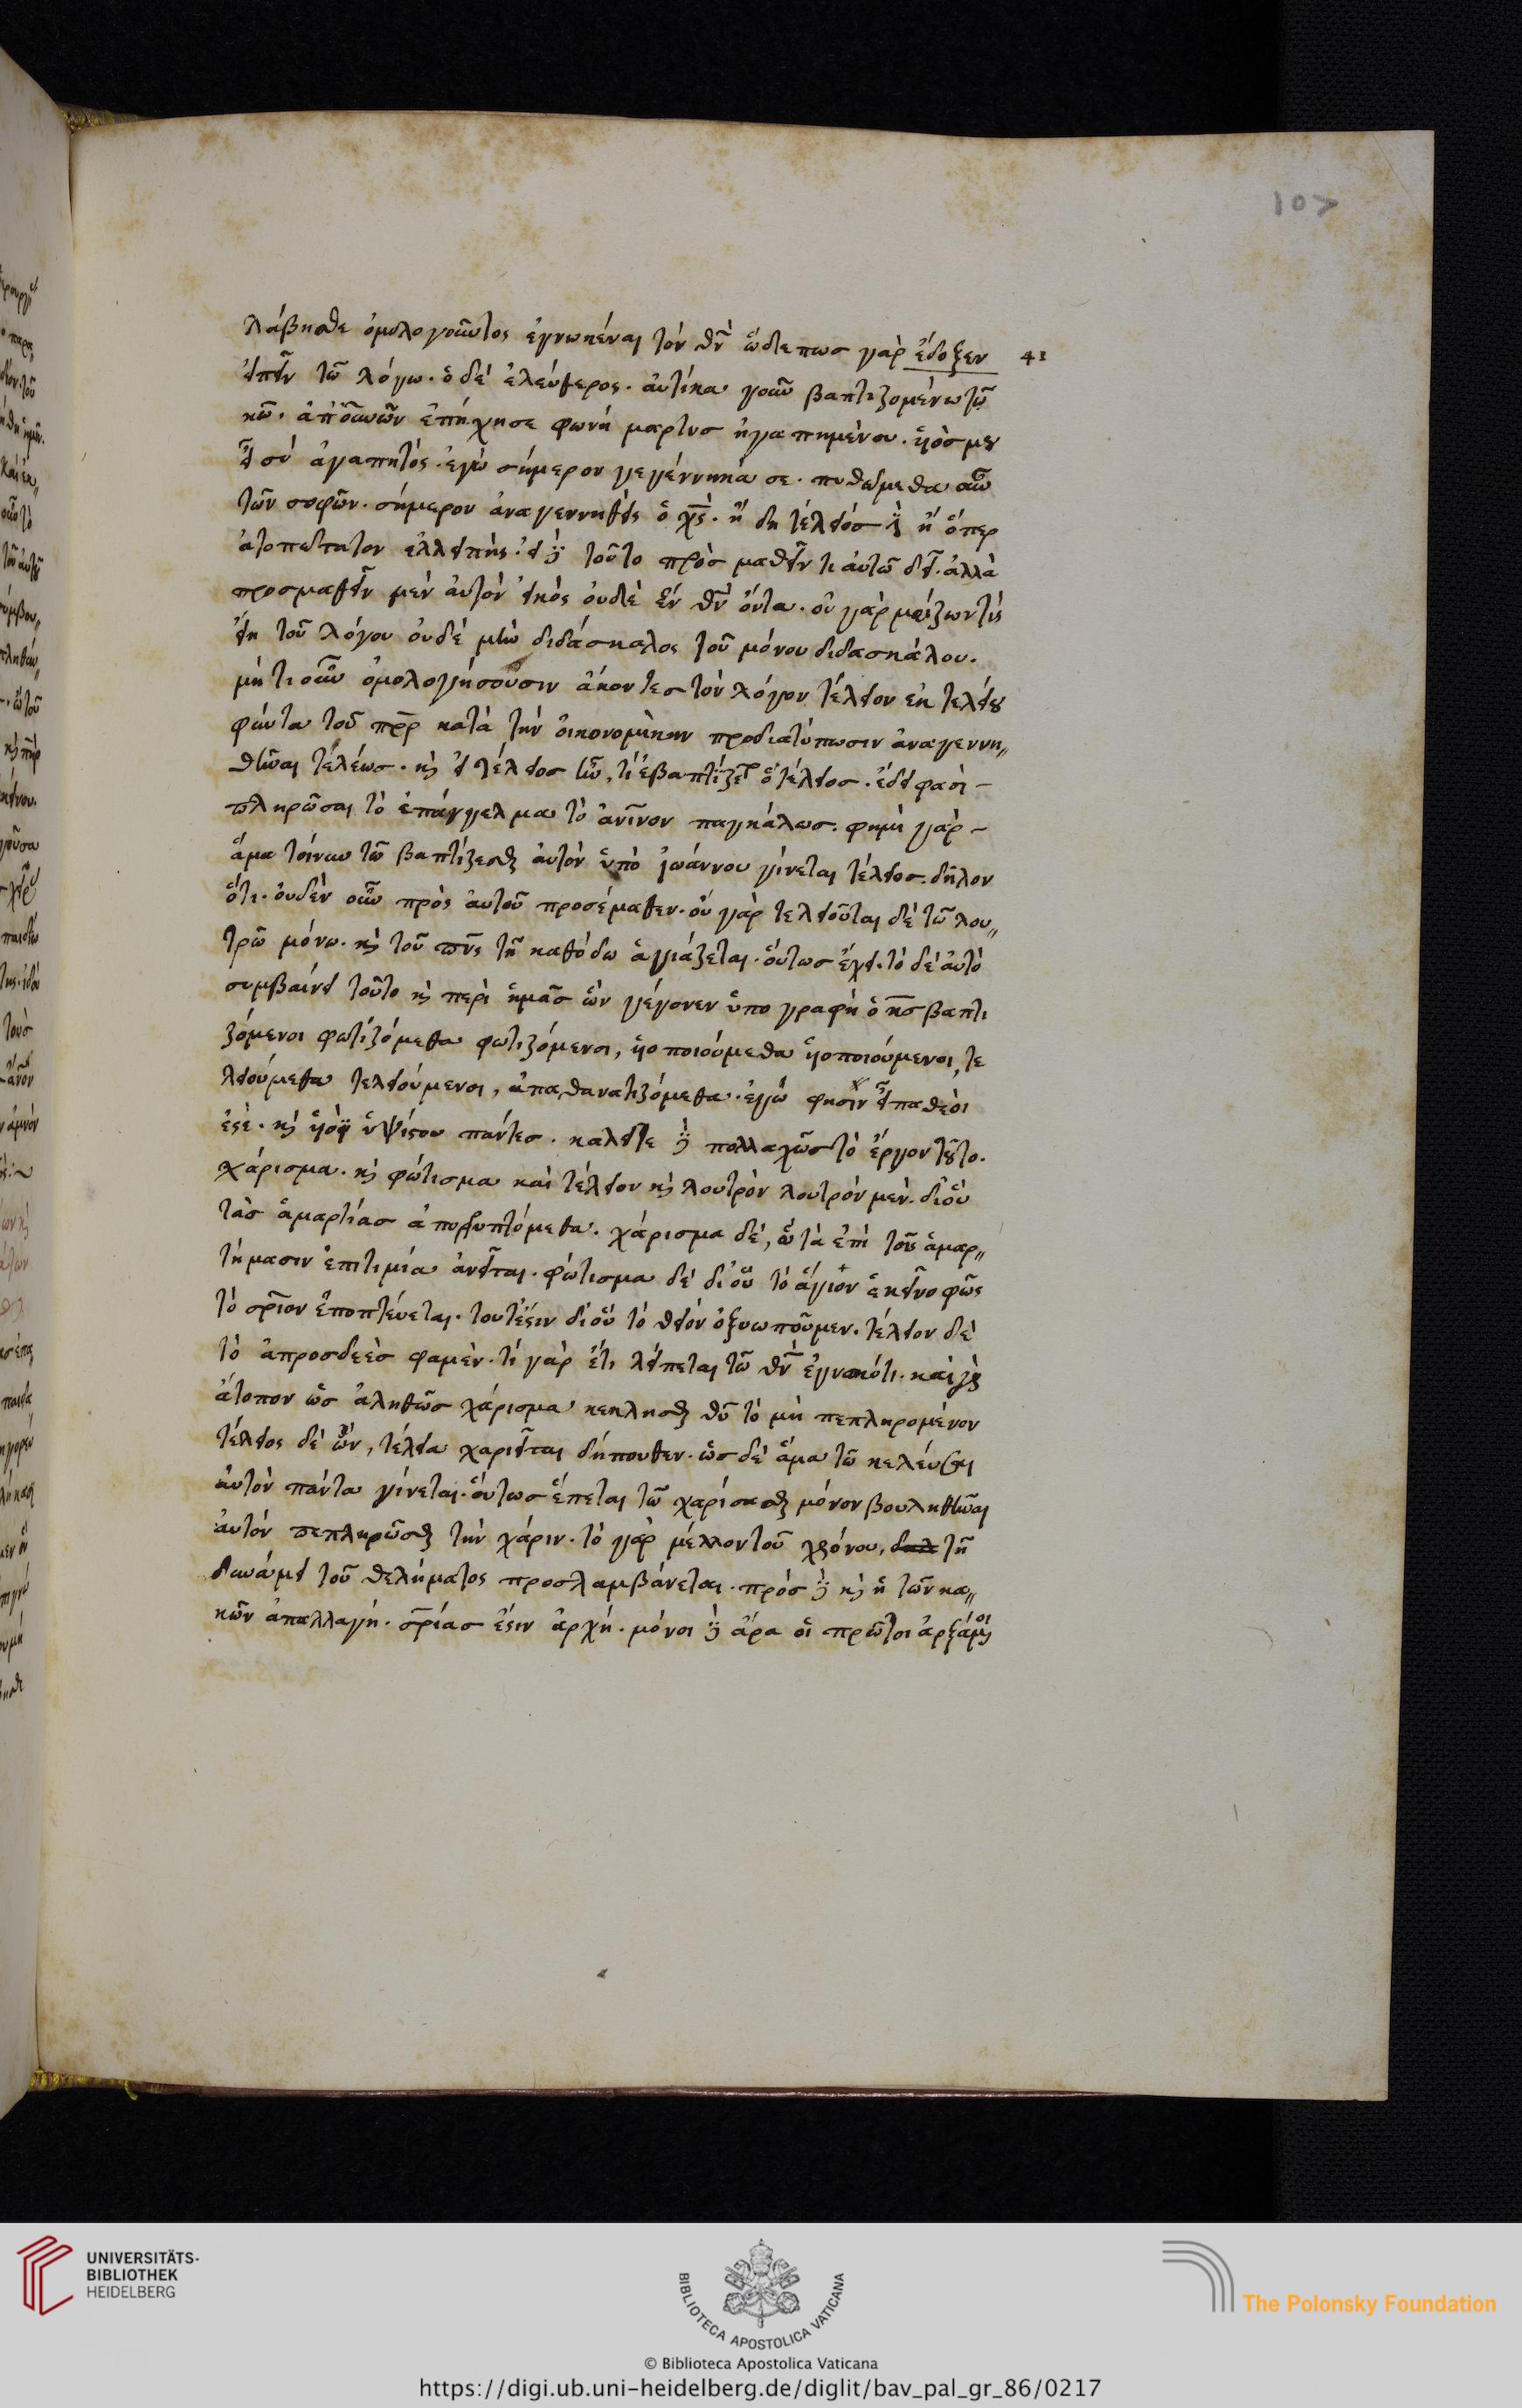 107
λάβησθε ὁμολογοῦντος ἐγνωκέναι τὸν θν̅ ὥδε πως γὰρ ἔδοξεν 41
εἰπεῖν τῶ λόγω. ὁ δὲ ἐλεύθερος. αὐτίκα γοῦν βαπτιζομένω τῶ
κω̅. ἀπ οὐνῶν ἐπήχησε φωνὴ μάρτυς ἠγαπημένου. υἱός μου
εἶ σὺ ἀγαπητὸς. ἐγὼ σήμερον γεγέννηκά σε. πυθώμεθα οὖν
τῶν σοφῶν. σήμερον ἀναγεννηθεὶς ὁ χς̅. ἤδη τέλειός ἐστιν ἢ ὅπερ
ἀτοπώτατον ἐλλειπής. εἰ δὲ τοῦτο προσμαθεῖν τι αὐτῶ δεῖ. ἀλλὰ
προσμαθεῖν μὲν αὐτὸν εἰκὸς οὐδὲ ἓν θν̅ ὄντα. οὐ γὰρ μείζων τις
εἴη τοῦ λόγου οὐδὲ μὴν διδάσκαλος τοῦ μόνου διδασκάλου.
μή τι οὖν ὁμολογήσουσιν ἄκοντες τὸν λόγον τέλειον ἐκ τελείου
φύντα τοῦ πρ̅ς κατὰ τὴν οἰκονομικὴν προδιατύπωσιν ἀναγεννη„
θῆναι τελέως. καὶ εἰ τέλειος ἦν, τί ἐβαπτίζετο ὁ τέλειος. ἔδει φασὶ –
πληρῶσαι τὸ ἐπάγγελμα τὸ ἀν̅ινον παγκάλως. φημὶ γὰρ –
ἅμα τοίνυν τῶ βαπτίζεσθαι αὐτὸν ὑπὸ ἰωάννου γίνεται τέλειος. δῆλον
ὅτι. οὐδὲν οὖν πρὸς αὐτοῦ προσέμαθεν. οὐ γὰρ τελειοῦται δὲ τῶ λου„
τρῶ μόνω. καὶ τοῦ πν̅ς τῆ καθόδω ἁγιάζεται. οὕτως ἔχει. τὸ δὲ αὐτὸ
συμβαίνει τοῦτο καὶ περὶ ἡμᾶς ὧν γέγονεν ὑπογραφὴ ὁ κς̅ βαπτι
ζόμενοι φωτιζόμεθα φωτιζόμενοι, υἱοποιούμεθα υἱοποιούμενοι, τε
λειούμεθα τελειούμενοι, ἀπαθανατιζόμεθα. ἐγώ φησιν εἶπα θεοί
ἐστε. καὶ υἱοὶ ὑψίστου πάντες. καλεῖται δὲ πολλαχῶς τὸ ἔργον τοῦτο.
χάρισμα. καὶ φώτισμα καὶ τέλειον καὶ λουτρὸν λουτρὸν μὲν. δι οὗ
τὰς ἁμαρτίας ἀπορρυπτόμεθα. χάρισμα δέ, ᾧ τὰ ἐπὶ τοῖς ἁμαρ„
τήμασιν ἐπιτιμία ἀνεῖται. φώτισμα δὲ δι οὗ τὸ ἅγιον ἐκεῖνο φῶς
τὸ σρ̅ιον ἐποπτεύεται. τουτέστιν δι οὗ τὸ θεῖον ὀξυωποῦμεν. τέλειον δὲ
τὸ ἀπροσδεὲς φαμὲν. τί γὰρ ἔτι λείπεται τῶ θν̅ ἐγνωκότι. καὶ γὰρ
ἄτοπον ὡς ἀληθῶς χάρισμα κεκλῆσθαι θυ̅ τὸ μὴ πεπληρομένον
τέλειος δὲ ὢν, τέλεια χαριεῖται δήπουθεν. ὡς δὲ ἅμα τῶ κελεῦσαι
αὐτὸν πάντα γίνεται. οὕτως ἕπεται τῶ χαρίσασθαι μόνον βουληθῆναι
αὐτὸν πεπληρῶσθαι τὴν χάριν. τὸ γὰρ μέλλον τοῦ χρόνου, τῆ
δυνάμει τοῦ θελήματος προσλαμβάνεται. πρὸς δὲ καὶ ἡ τῶν κα„
κῶν ἀπαλλαγὴ. σρ̅ίας ἐστιν ἀρχή. μόνοι δὲ ἄρα οἱ πρῶτοι ἀρξάμενοι
UNIVERSITÄTS-
BIBLIOTHEK
HEIDELBERG
BIBLIOTECA APOSTOLICA VATICANA
The Polonsky Foundation
© Biblioteca Apostolica Vaticana
https://digi.ub.uni-heidelberg.de/diglit/bav_pal_gr_86/0217